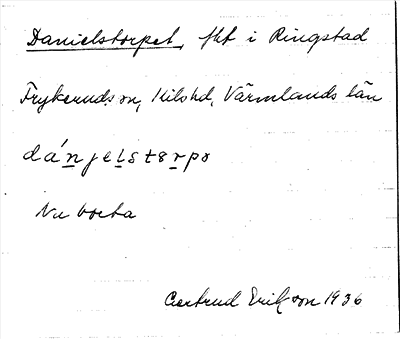 Danielstorpet, fht i Ringstad
Frykeruds sn, Kils hd, Värmlands län
dánjelstorpə
Nu borta
Gertrud Erikson 1936